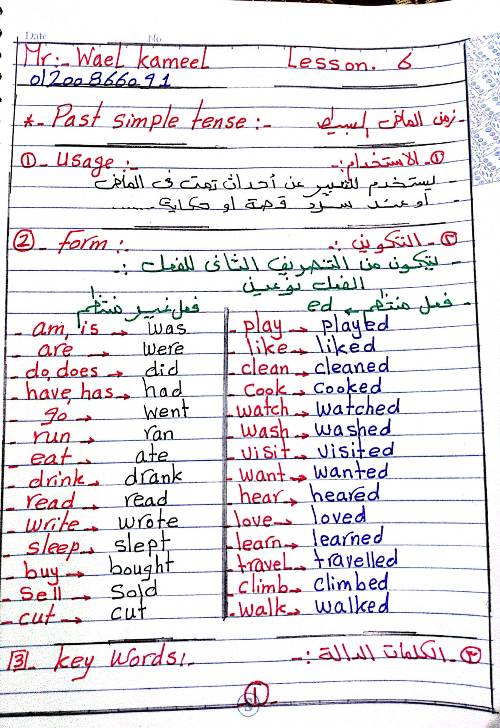 Date No
Mr:- Wael kameel Lesson. 6
01200866091
*- Past simple tense :- - زمن الماضى البسيط
① - Usage :- ① - الاستخدام :-
- يستخدم للتعبير عن أحداث تمت فى الماضى
- أو عند سرد قصة أو حكاية ......
② - form :- ② - التكوين :-
- يتكون من التصريف الثانى للفعل :-
الفعل نوعين
فعل غير منتظم - فعل منتظم ← ed
- am, is → was - play → played
- are → were - like → liked
- do, does → did - clean → cleaned
- have, has → had - Cook → cooked
- go → went - watch → watched
- run → ran - wash → washed
- eat → ate - visit → visited
- drink → drank - want → wanted
- read → read - hear → heared
- write → wrote - love → loved
- sleep → slept - learn → learned
- buy → bought - travel → travelled
- Sell → Sold - climb → climbed
- cut → cut - walk → walked
3 - key words:- ③ - الكلمات الدالة :-
①